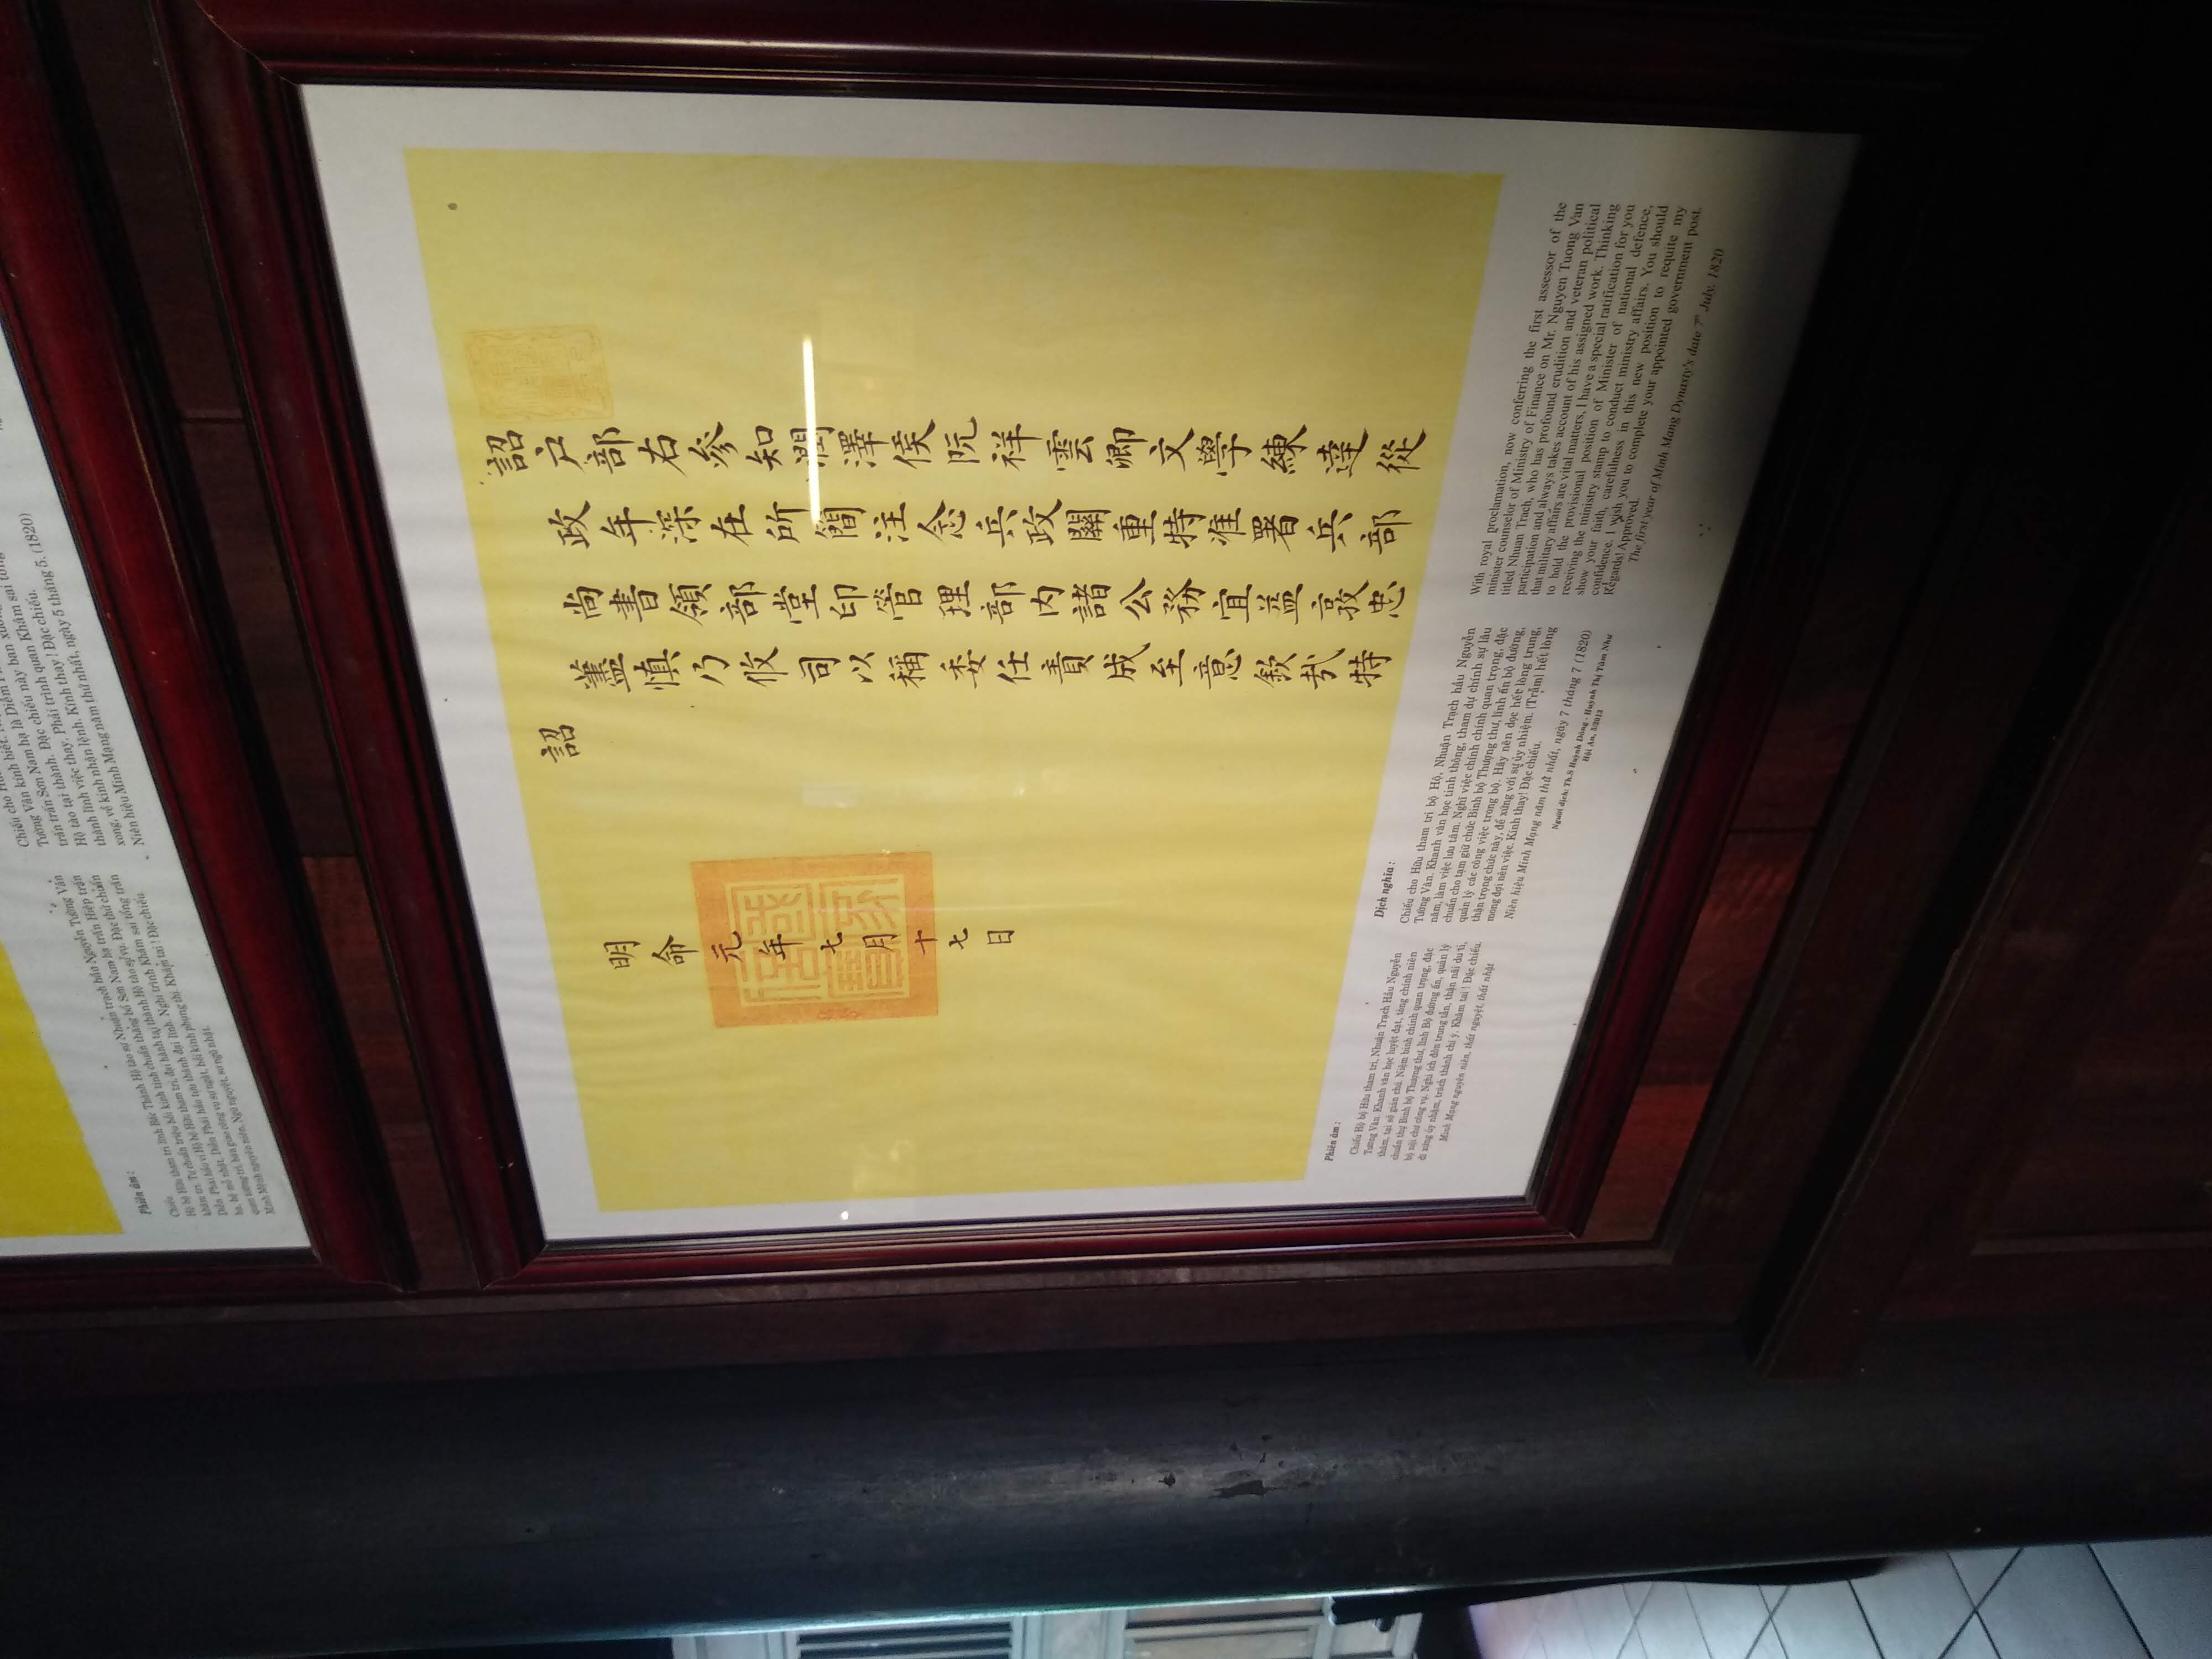 Phiên âm :
Chiếu
Hộ bộ Hữu tham tri lĩnh Bắc Thành Hộ tào sự Nhuận trạch hầu Nguyễn Tường Vân
khâm tri. Tư chuẩn triệu hồi kinh tinh chuẩn thăng bổ Sơn Nam hạ trấn Hiệp trấn
Diễn Phái hầu vi Hộ bộ Hữu tham tri, đại hành tại thành Hộ tào sự vụ. Đặc thử chuẩn
hạ, hệ mỗ nhật, Diễn Phái hầu tựu thành đại lĩnh. Nghi trình Khâm sai tổng trấn
quan tường tri, bàn giao công vụ sự ngật, hồi kinh phụng thị. Khâm tai ! Đặc chiếu.
Minh Mệnh nguyên niên. Ngũ nguyệt, sơ ngũ nhật.
Chiếu cho
Tường Vân kính biết.
trấn trấn Sơn Nam hạ là Diễm
Hộ tào tại thành. Đặc chiếu này ban
thành lĩnh việc thay. Phải trình quan Khâm sai tổng
xong, về kinh nhận lệnh. Kính thay ! Đặc chiếu.
Niên hiệu Minh Mạng năm thứ nhất, ngày 5 tháng 5. (1820)
詔户部右參知潤澤侯阮祥雲卿文學練達從
政年深在所簡注念兵政關重特准署兵部
尚書領部堂印管理部内諸公務宜益敦忠
藎慎乃攸司以稱委任責成至意欽哉特
詔
明命元年七月十七日
國家信寶
Phiên âm :
Chiếu Hộ bộ Hữu tham tri, Nhuận Trạch Hầu Nguyễn
Tường Vân. Khanh văn học luyệt đạt, tòng chính niên
thâm, tại sở giản chú. Niệm binh chính quan trọng, đặc
chuẩn thự Binh bộ Thượng thư, lĩnh Bộ đường ấn, quản lý
bộ nội chư công vụ. Nghi ích đôn trung tẫn, thận nãi du ti,
dĩ xứng ủy nhậm, trách thành chí ý. Khâm tai ! Đặc chiếu.
Minh Mạng nguyên niên, thất nguyệt, thất nhật
Dịch nghĩa :
Chiếu cho Hữu tham tri bộ Hộ, Nhuận Trạch hầu Nguyễn
Tường Vân. Khanh văn học tinh thông, tham dự chính sự lâu
năm, làm việc lưu tâm. Nghĩ việc chính chính quan trọng, đặc
chuẩn cho tạm giữ chức Binh bộ Thượng thư, lĩnh ấn bộ đường,
quản lý các công việc trong bộ. Hãy nên dọc hết lòng trung,
thận trọng chức này, để xứng với sự ủy nhiệm. [Trẫm] hết lòng
mong đợi nên việc. Kính thay! Đặc chiếu.
Niên hiệu Minh Mạng năm thứ nhất, ngày 7 tháng 7 (1820)
Người dịch: Th.S Huỳnh Đông - Huỳnh Thị Tâm Như
Hội An, 3/2013
With royal proclamation, now conferring the first assessor of the
minister counselor of Ministry of Finance on Mr. Nguyen Tuong Van
titled Nhuan Trach, who has profound erudition and veteran political
participation and always takes account of his assigned work. Thinking
that military affairs are vital matters, I have a special ratification for you
to hold the provisional position of Minister of national defence,
receiving the ministry stamp to conduct ministry affairs. You should
show your faith, carefulness in this new position to requite my
confidence. I wish you to complete your appointed government post.
Regards! Approved.
The first year of Minh Mang Dynasty's date 7th July, 1820